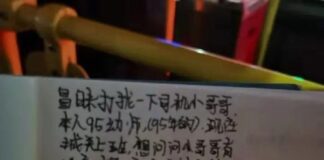 冒昧打扰一下司机小哥哥
本人95幼师(95年的)现在
城北上班,想问问小哥哥有